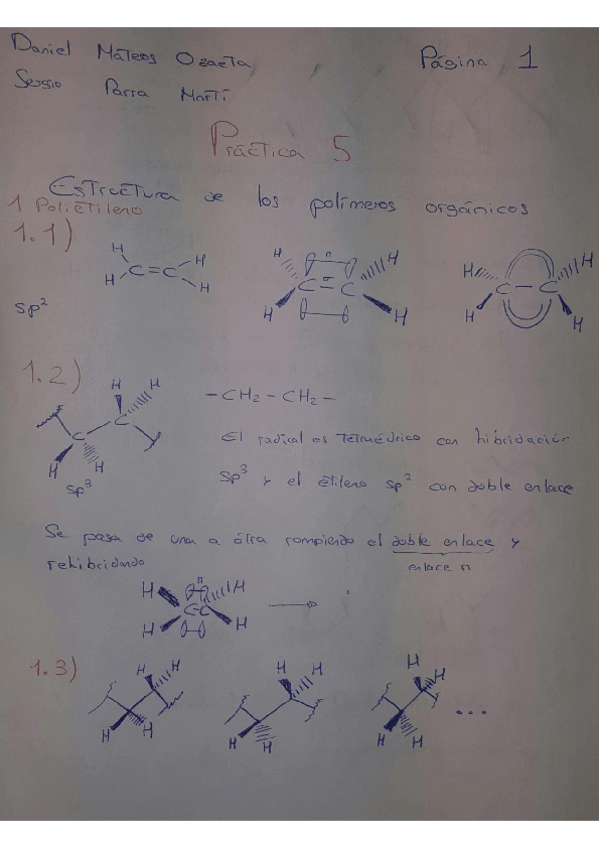 Daniel Máteos Página 1
Sergio Parra Martí
Práctica 5
Estructura de los polímeros orgánicos
1 Polietileno
1.1)
H H
C=C
H H
H π H
C=C
H H
H H
C-C
H H
sp²
1.2)
H H
C
C
H H
sp³
-CH2-CH2-
El radical es Tetraédrico con hibridación
sp³ y el étileno sp² con doble enlace
Se pasa de una a ótra rompiendo el doble enlace y
rehibridando enlace π
H π H
C=C
H H
1.3)
H H H H H H
H H H H H H ...